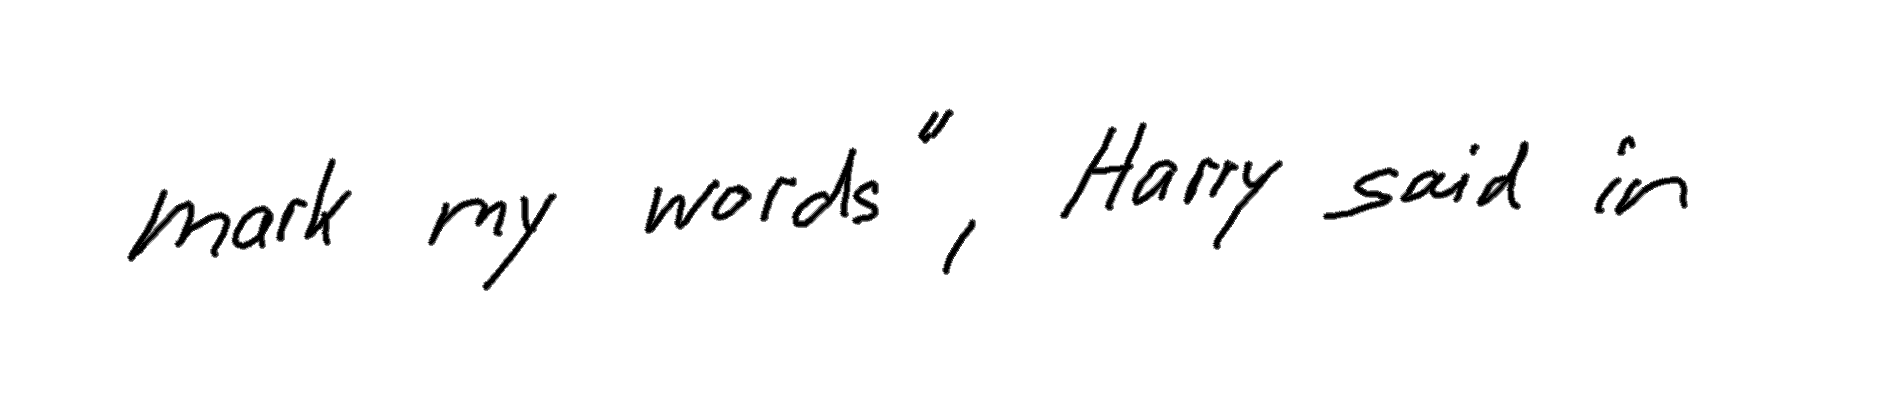 mark my words", Harry said in